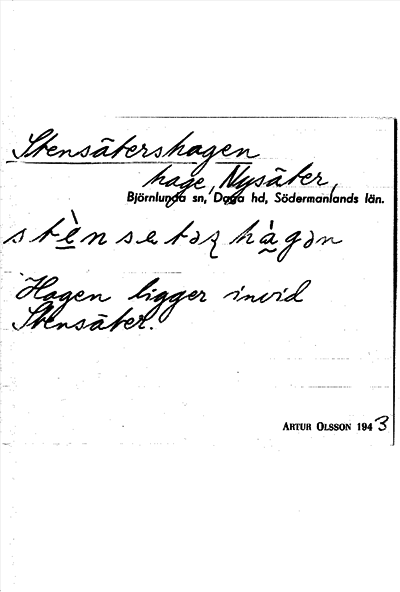 Stensätershagen
hage, Nysäter,
Björnlunda sn, Daga hd, Södermanlands län.
stènsetəʀ hàgən
Hagen ligger invid
Stensäter.
ARTUR OLSSON 1943